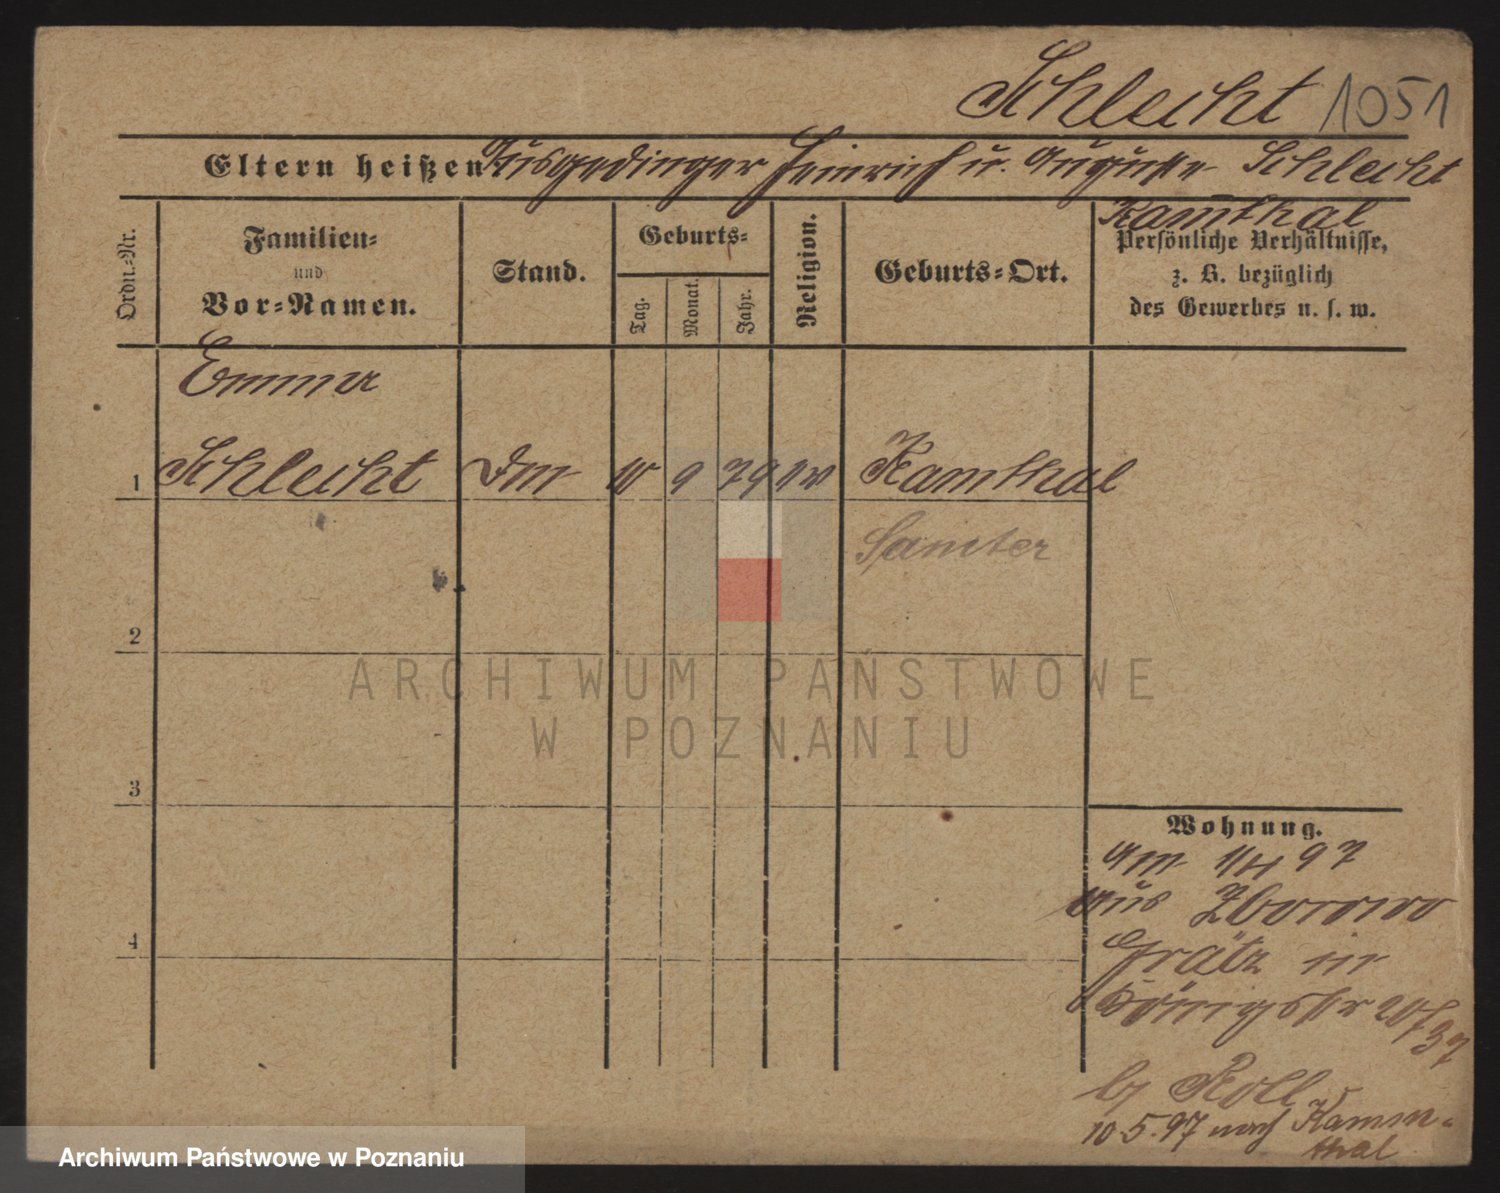 Schlecht 1051
Eltern heißen: Ausgedinger Heinrich u. Auguste Schlecht
Kam̅thal
Ordn.-Nr.
Familien-
und
Vor-Namen.
Stand.
Geburts-
Tag.
Monat.
Jahr.
Religion.
Geburts-Ort.
Persönliche Verhältnisse,
z. B. bezüglich
des Gewerbes u. s. w.
Emma
1 Schlecht 10 9 79 ev Kamthal
Samter
2
3
4
Wohnung.
Am 1/4 97
aus Zborowo
Grätz in
Königstr 20/
b/ Roll
10.5.97 nach Kamm-
thal
ARCHIWUM PAŃSTWOWE
W POZNANIU
Archiwum Państwowe w Poznaniu